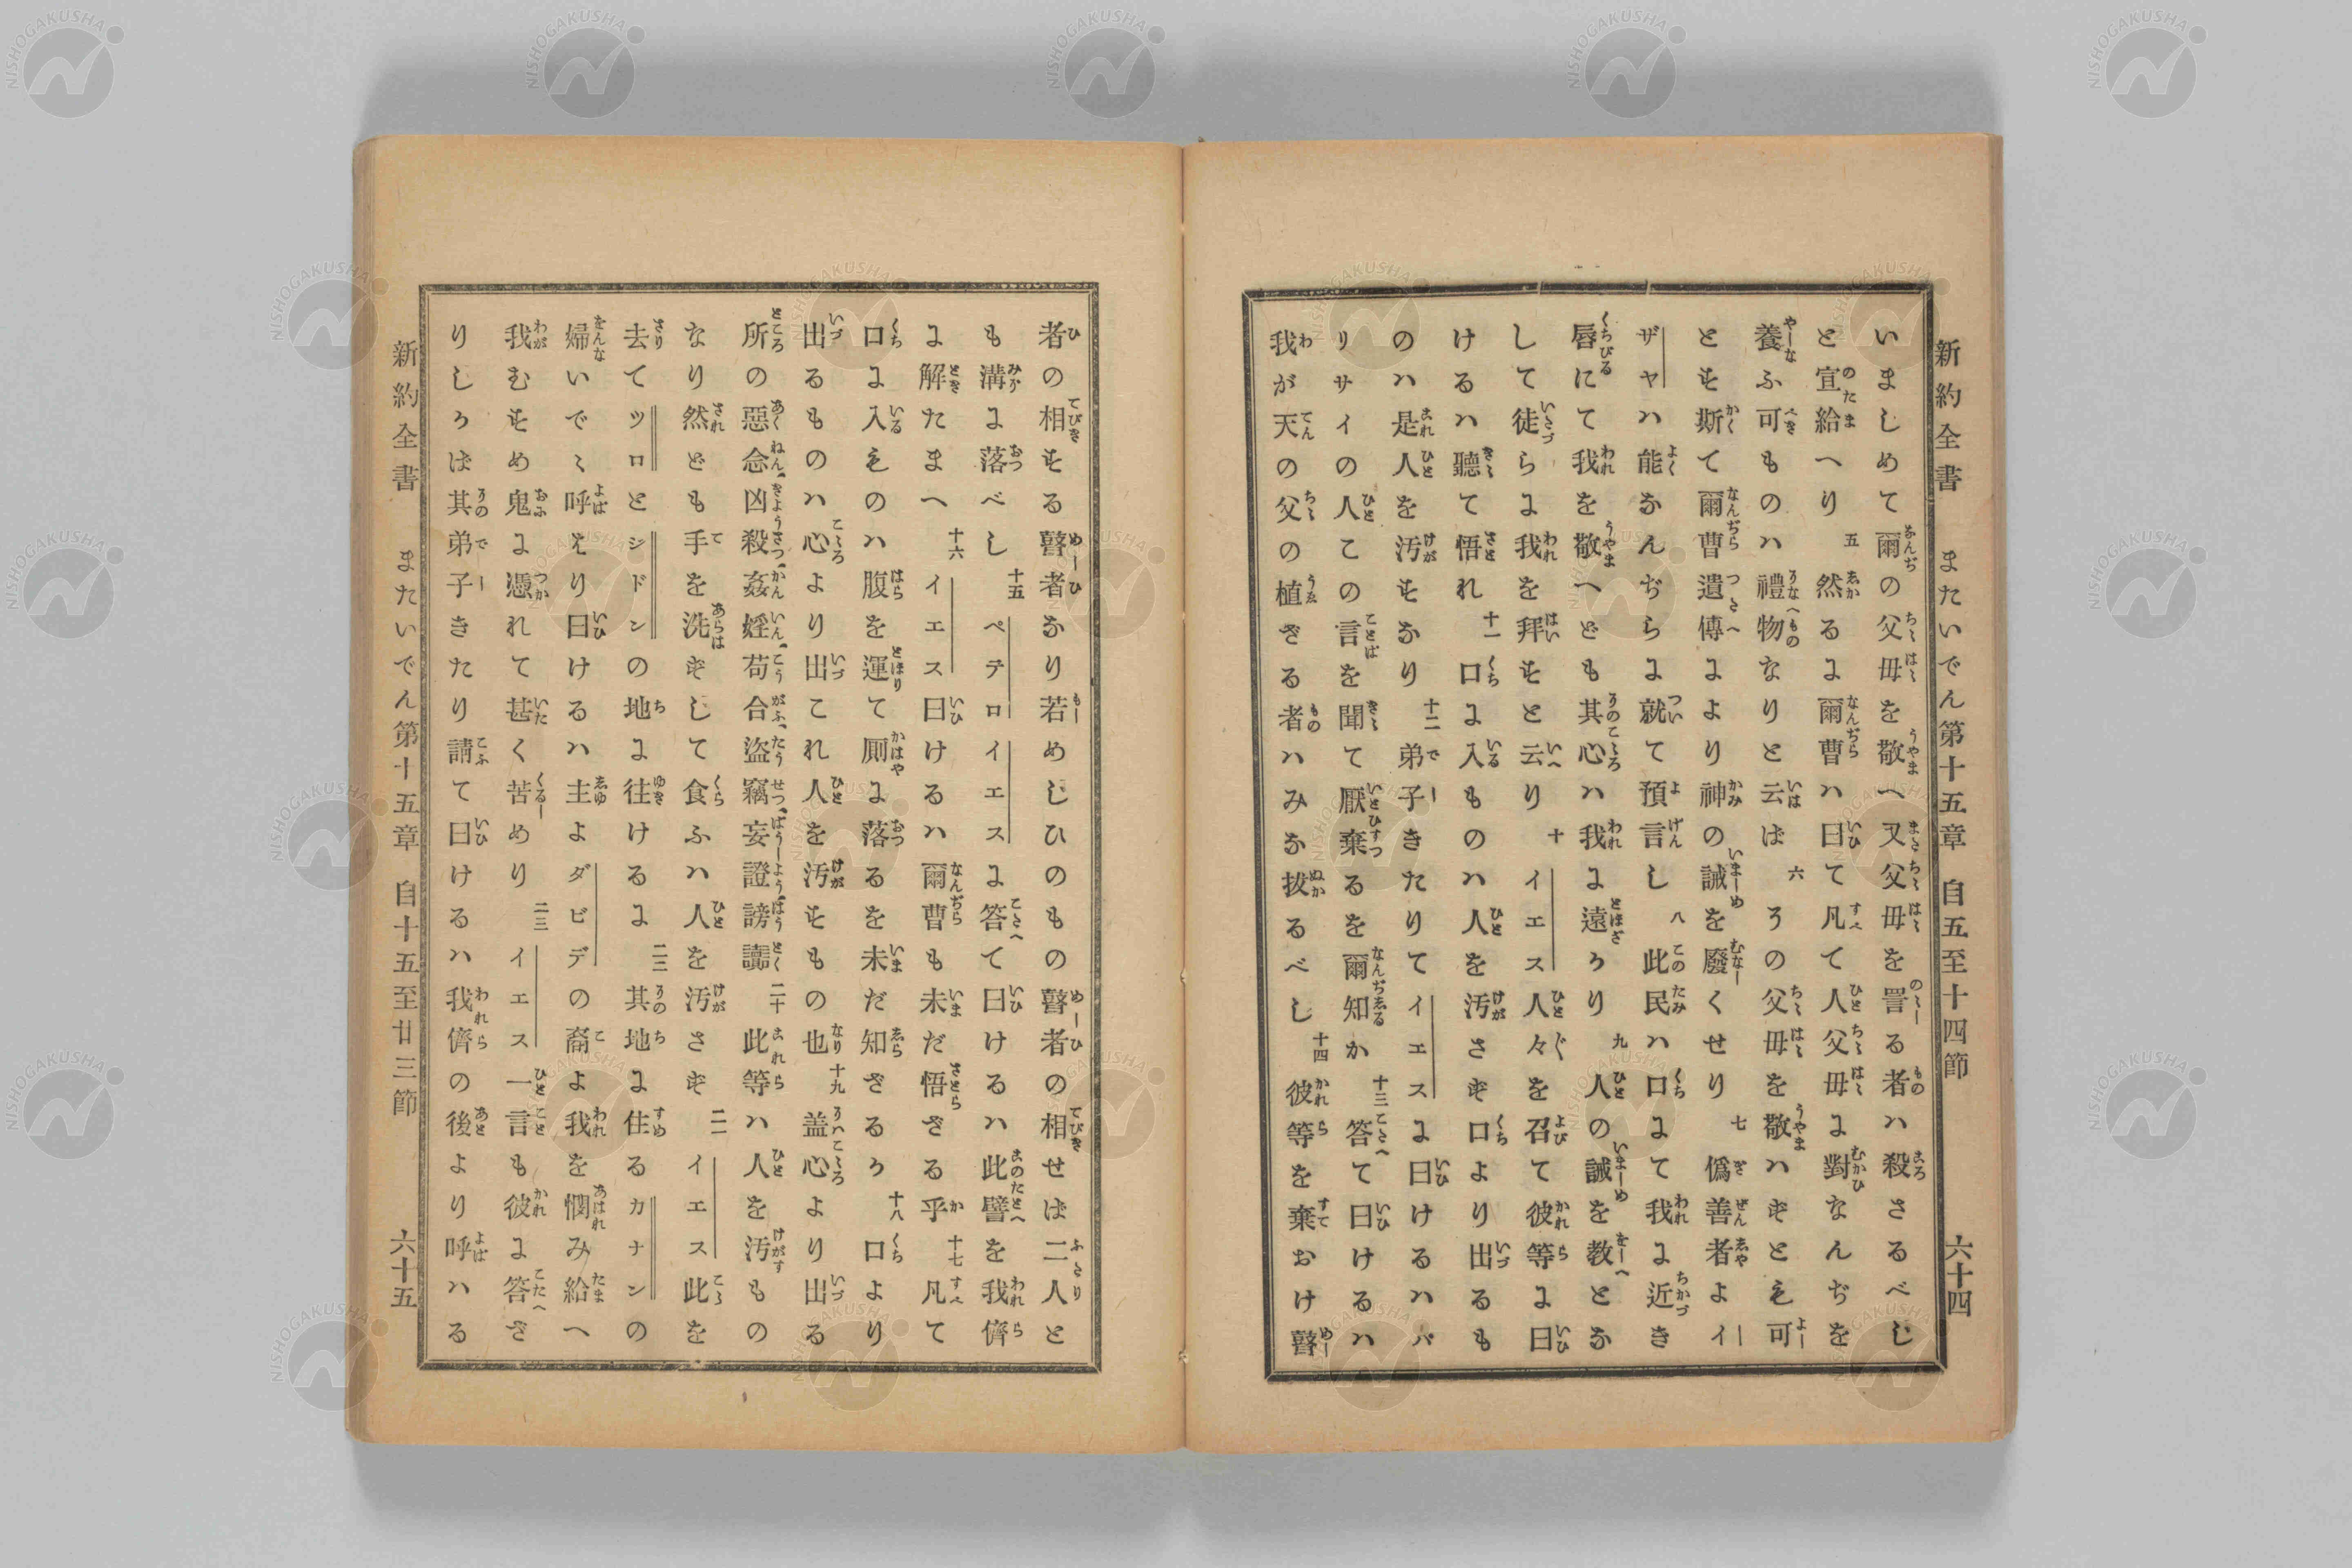 新約全書 またいでん第十五章 自五至十四節 六十四
いましめて爾の父母を敬へ又父母を詈る者ハ殺さるべし
と宣給へり 五 然るに爾曹ハ曰て凡て人父母に對なんぢを
養ふ可ものハ禮物なりと云ば 六 そのの父母を敬ハずとも可
とす斯て爾曹遺傳により神の誡を廢くせり 七 僞善者よイ
ザヤハ能なんぢらに就て預言し 八 此民ハ口にて我に近き
唇にて我を敬へども其心ハ我に遠かり 九 人の誡を教とな
して徒らに我を拜すと云り 十 イエス人々を召て彼等に曰
けるハ聽て悟れ 十一 口に入ものハ人を汚さず口より出るも
のハ是人を汚すなり 十二 弟子きたりてイエスに曰けるハパ
リサイの人この言を聞て厭棄るを爾知か 十三 答て曰けるハ
我が天の父の植ざる者ハみな拔るべし 十四 彼等を棄おけ瞽
者の相する瞽者なり若めしひのもの瞽者の相せば二人と
も溝に落べし 十五 ペテロイエスに答て曰けるハ此譬を我儕
に解たまへ 十六 イエス曰けるハ爾曹も未だ悟ざる乎 十七 凡て
口に入ものハ腹を運て厠に落るを未だ知ざるか 十八 口より
出るものハ心より出これ人を汚すもの也 十九 蓋心より出る
所の惡念凶殺姦婬苟合盜竊妄證謗讟 二十 此等ハ人を汚もの
なり然ども手を洗ずして食ふハ人を汚さず 二一 イエス此を
去てツロとシドンの地に往けるに 二二 其地に住るカナンの
婦いでゝ呼えり曰けるハ主よダビデの裔よ我を憫み給へ
我むすめ鬼に憑れて甚く苦めり 二三 イエス一言も彼に答ざ
りしかば其弟子きたり請て曰けるハ我儕の後より呼ハる
新約全書 またいでん第十五章 自十五至廿三節 六十五